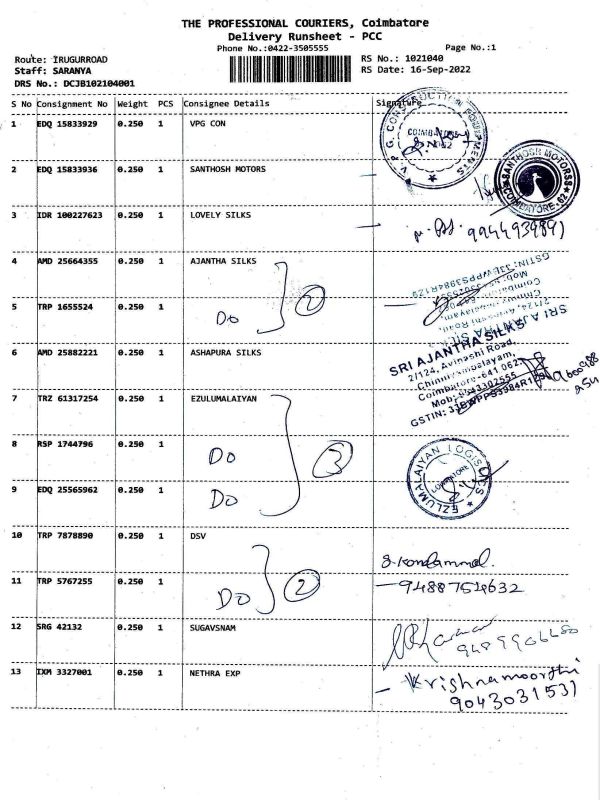 THE PROFESSIONAL COURIERS, Coimbatore
Delivery Runsheet - PCC
Phone No.:0422-3505555 Page No.:1
Route: IRUGURROAD RS No.: 1021040
Staff: SARANYA RS Date: 16-Sep-2022
DRS No.: DCJB102104001
S No Consignment No Weight PCS Consignee Details Signature
1 EDQ 15833929 0.250 1 VPG CON
V.P.G. CONSTRUCTION
2 EDQ 15833936 0.250 1 SANTHOSH MOTORS
SANTHOSH MOTORS
COIMBATORE-62
3 IDR 100227623 0.250 1 LOVELY SILKS
4 AMD 25664355 0.250 1 AJANTHA SILKS
2
5 TRP 1655524 0.250 1 Do
SRI AJANTHA SILKS
2/124, Avinashi Road,
Chinniyampalayam,
Coimbatore-641 062.
6 AMD 25882221 0.250 1 ASHAPURA SILKS
7 TRZ 61317254 0.250 1 EZULUMALAIYAN
8 RSP 1744796 0.250 1 Do 3
EZLUMALAIYAN LOGISTICS
COIMBATORE
9 EDQ 25565962 0.250 1 Do
10 TRP 7878890 0.250 1 DSV
11 TRP 5767255 0.250 1 Do 2
9488754632
12 SRG 42132 0.250 1 SUGAVSNAM
13 IXM 3327001 0.250 1 NETHRA EXP
Krishnamoorthi
9043031531